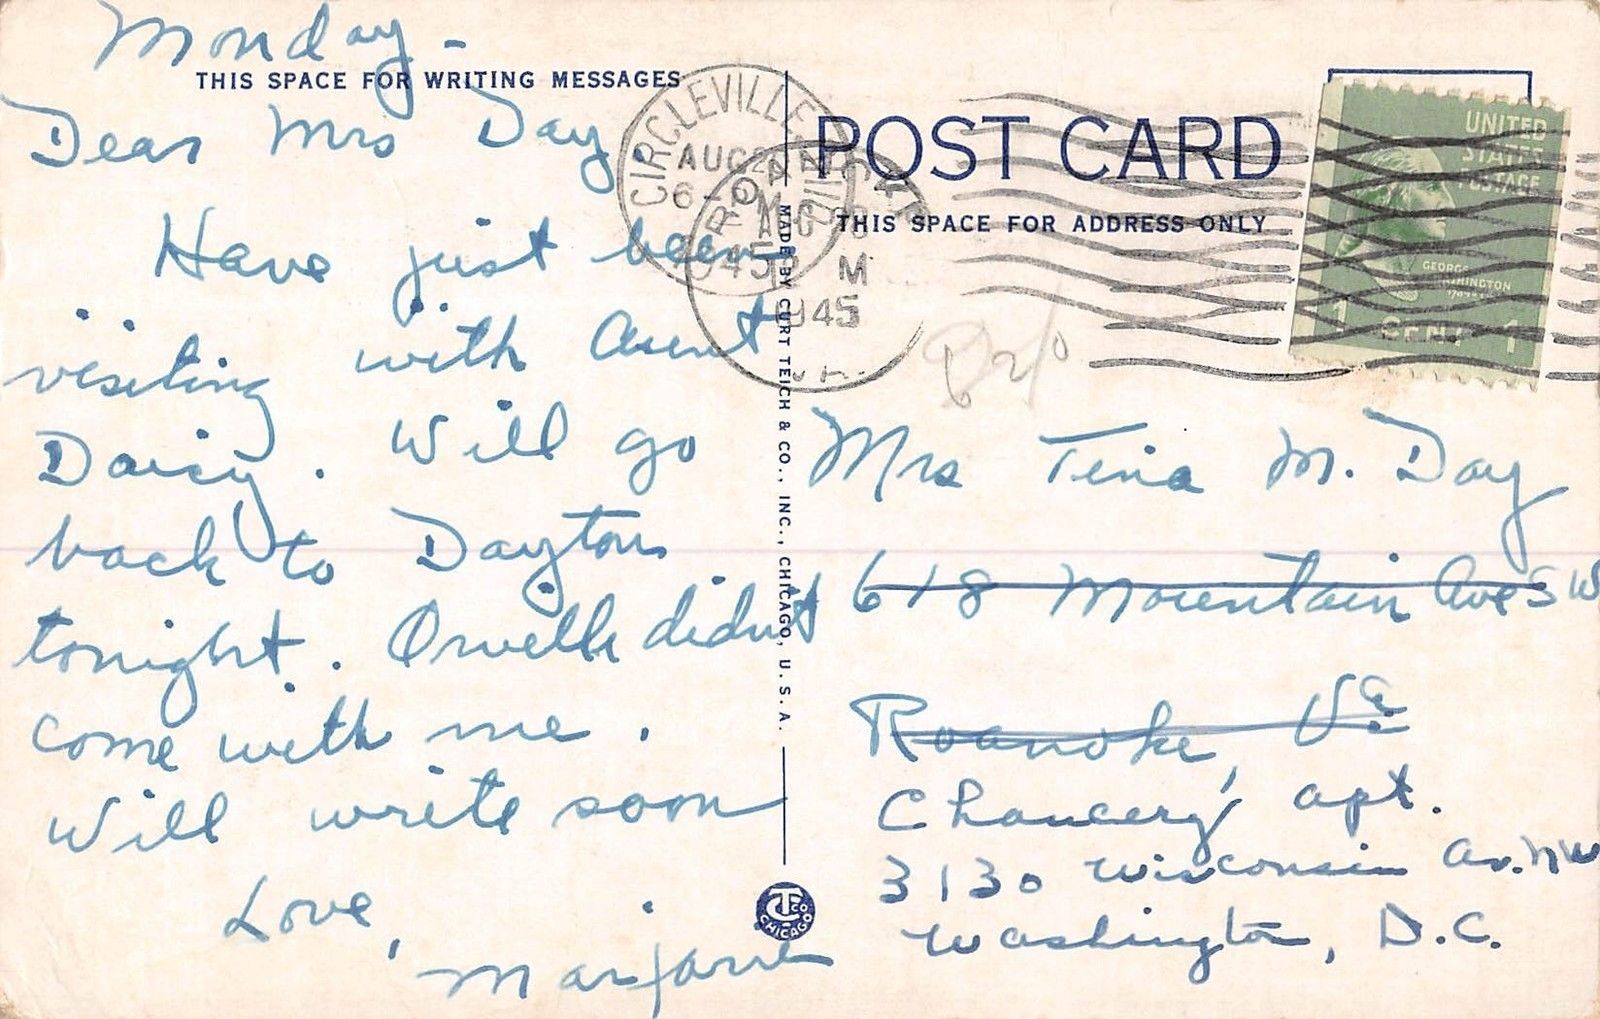 Monday -
THIS SPACE FOR WRITING MESSAGES
Dear Mrs Day,
Have just been
visiting with Aunt
Daisy. Will go
back to Dayton
tonight. Orvelle didn't
come with me.
Will write soon
Love,
Marjorie
MADE BY CURT TEICH & CO., INC., CHICAGO, U. S. A.
CTCO
CHICAGO
CIRCLEVILLE
AUG
6-
1945
ROANOKE
AUG
M
1945
POST CARD
THIS SPACE FOR ADDRESS ONLY
UNITED
STATES
POSTAGE
GEORGE
WASHINGTON
1 CENT 1
Mrs Tina M. Day
618 Mountain Ave SW
Roanoke, Va
Chancery apt.
3130 Wisconsin Av. NW
Washington, D.C.